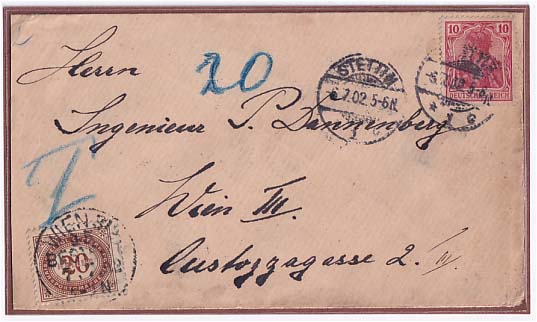 Herrn
20
10
DEUTSCHES REICH
STETTIN
6.7.02.5-6N.
1
Ingenieur P. Dannenberg
T
Wien III.
Custozzagasse 2.
20
WIEN